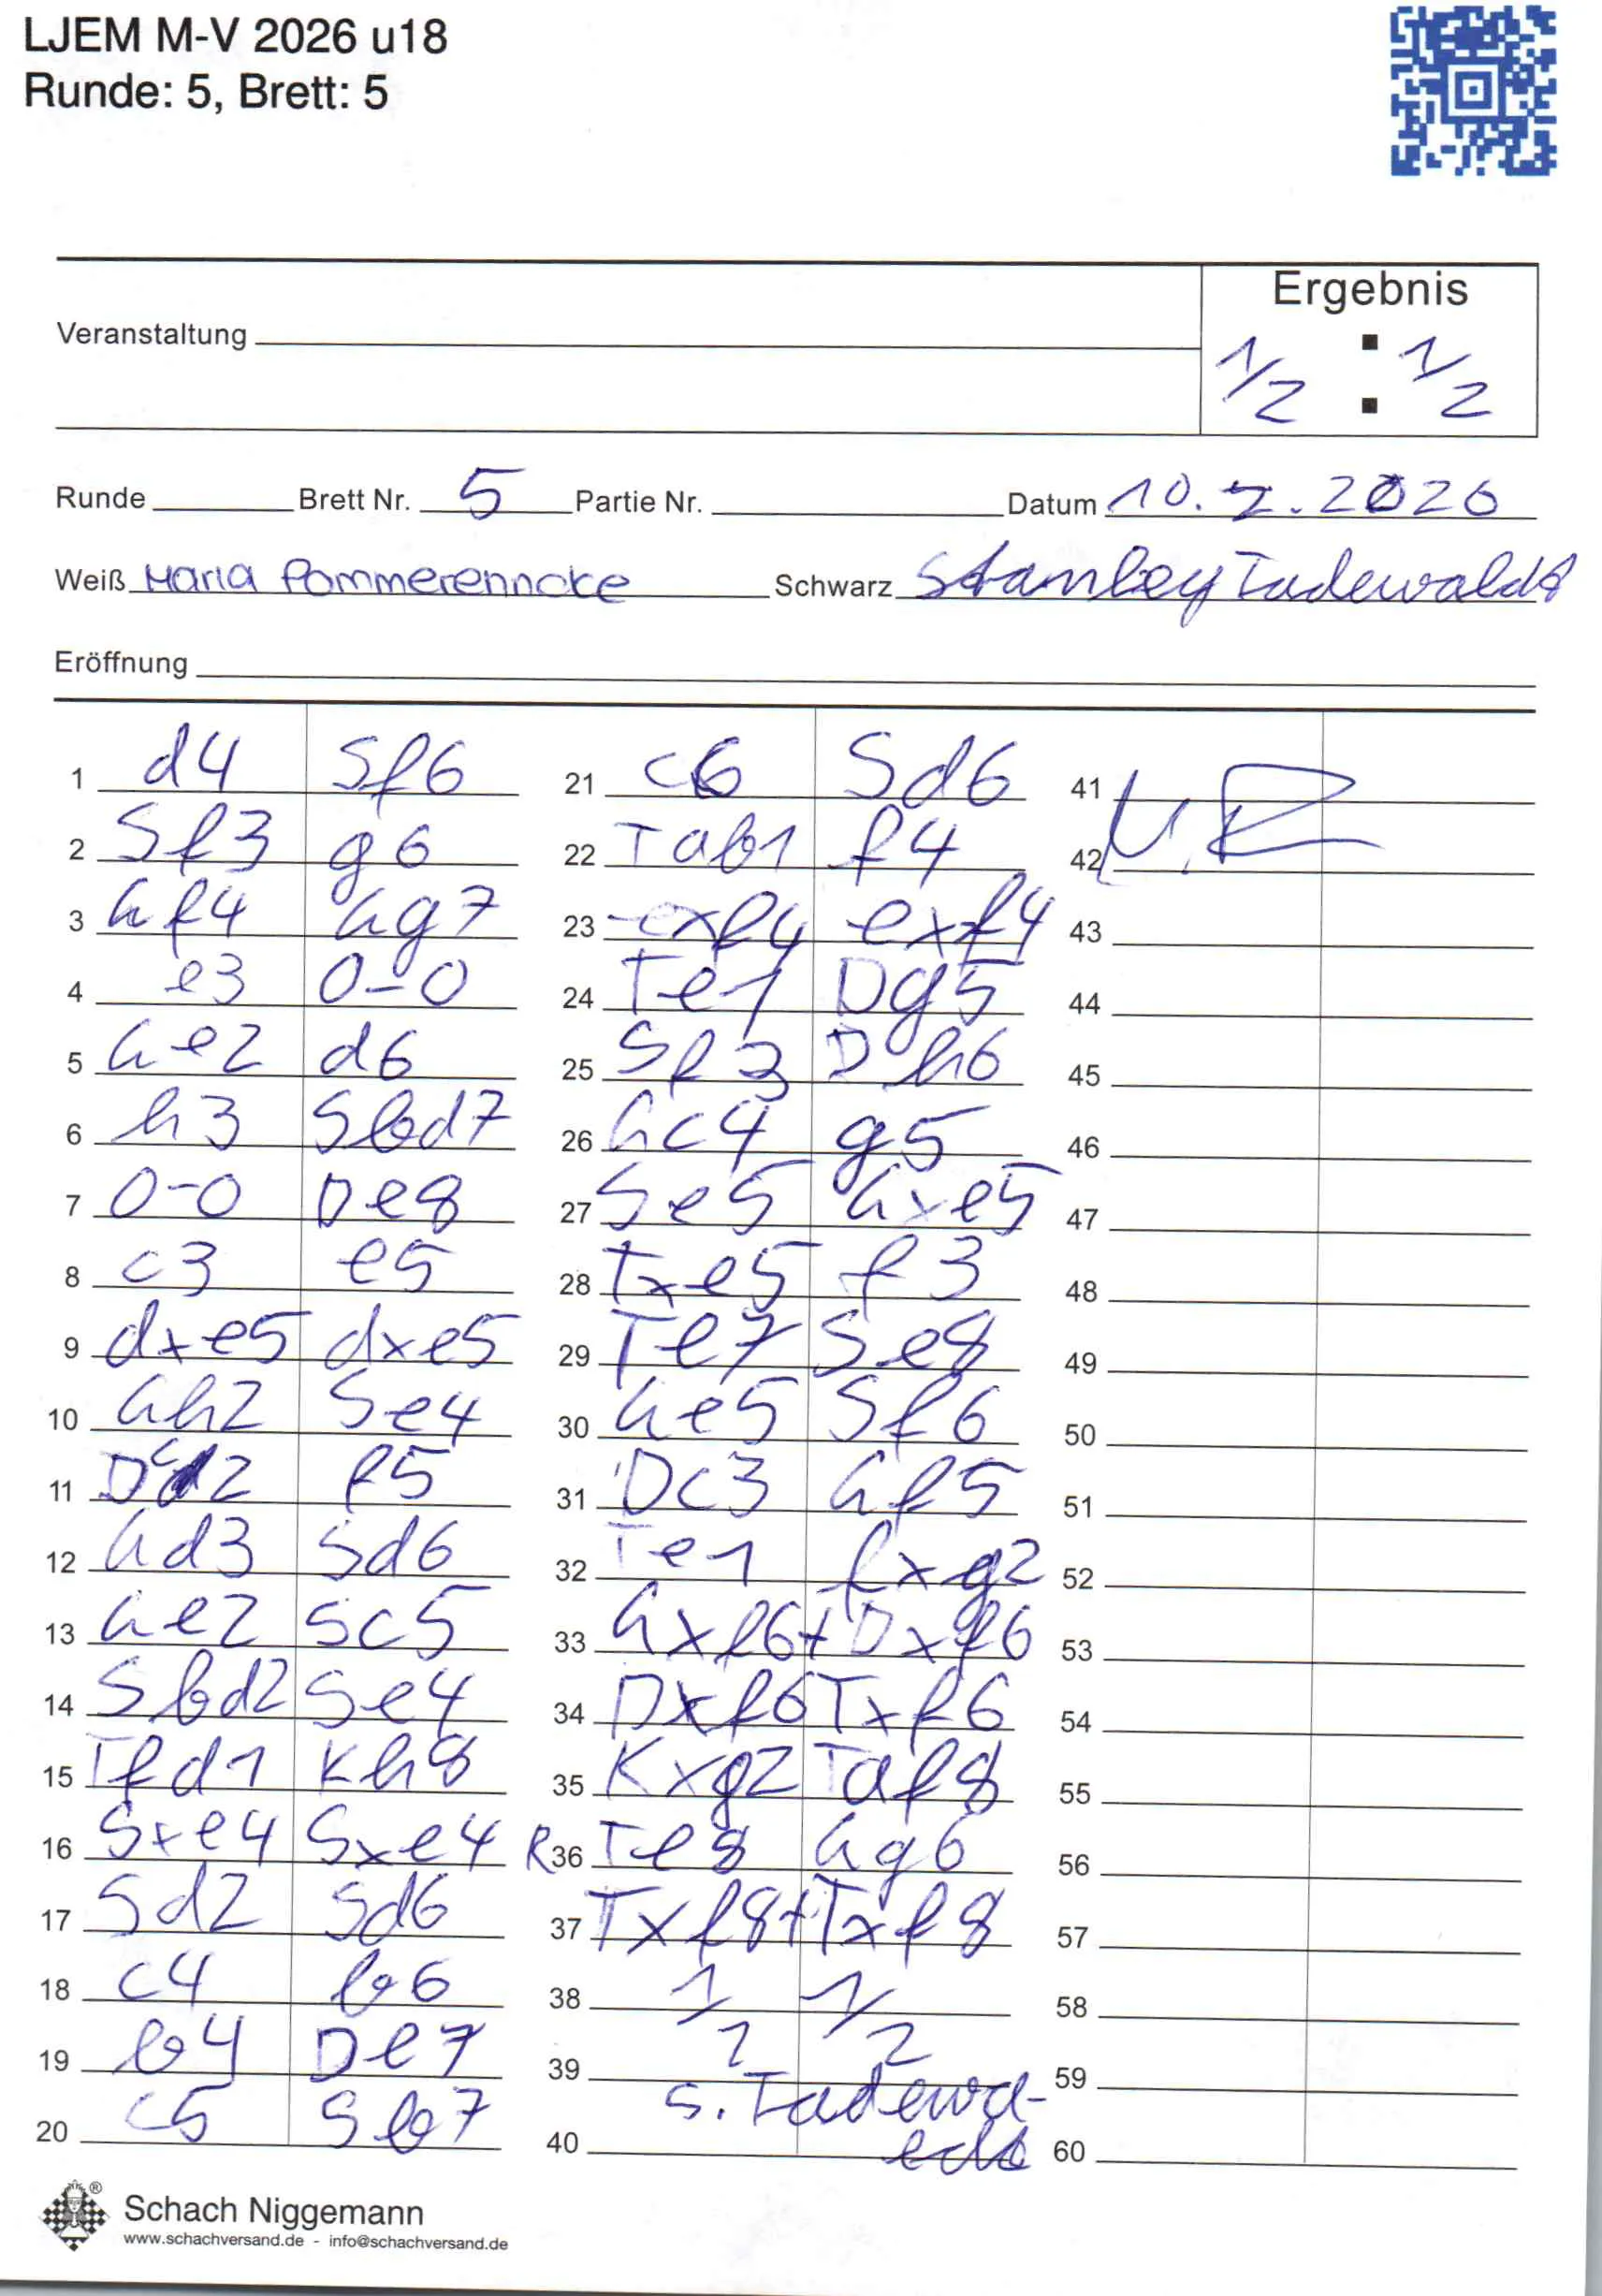 LJEM M-V 2026 u18
Runde: 5, Brett: 5
Ergebnis
Veranstaltung
1/2 : 1/2
Runde Brett Nr. 5 Partie Nr. Datum 10.2.2026
Weiß Maria Pommerenncke Schwarz Stamley Tadewaldt
Eröffnung
1 d4 Sf6 21 c6 Sd6 41
2 Sf3 g6 22 Tab1 f4 42
3 Lf4 Lg7 23 exf4 exf4 43
4 e3 0-0 24 Te1 Dg5 44
5 Le2 d6 25 Sf3 Dh6 45
6 h3 Sbd7 26 Lc4 g5 46
7 0-0 De8 27 Se5 Lxe5 47
8 c3 e5 28 Txe5 f3 48
9 dxe5 dxe5 29 Te7 Se8 49
10 Lh2 Se4 30 Le5 Sf6 50
11 Dc2 f5 31 Dc3 Lf5 51
12 Ld3 Sd6 32 Te1 fxg2 52
13 Le2 Sc5 33 Lxf6+ Dxf6 53
14 Sbd2 Se4 34 Dxf6 Txf6 54
15 Tfd1 Kh8 35 Kxg2 Taf8 55
16 Sxe4 Sxe4 R36 Te8 Lg6 56
17 Sd2 Sd6 37 Txf8+ Txf8 57
18 c4 b6 38 1/2 1/2 58
19 b4 De7 39 59
20 c5 Sb7 40 60
S. Tadewa-
ldt
® Schach Niggemann
www.schachversand.de - info@schachversand.de